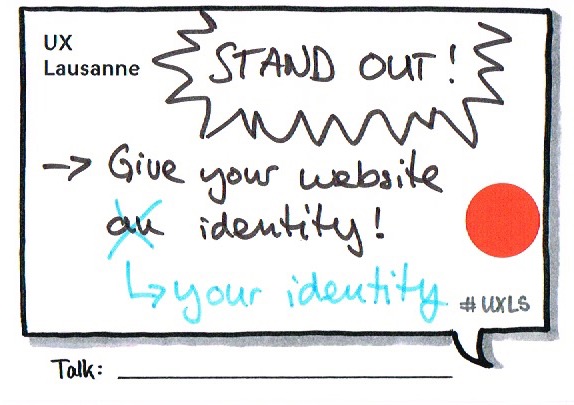 UX
Lausanne
STAND OUT!
-> Give your website
an identity!
↳ your identity
#UXLS
Talk: